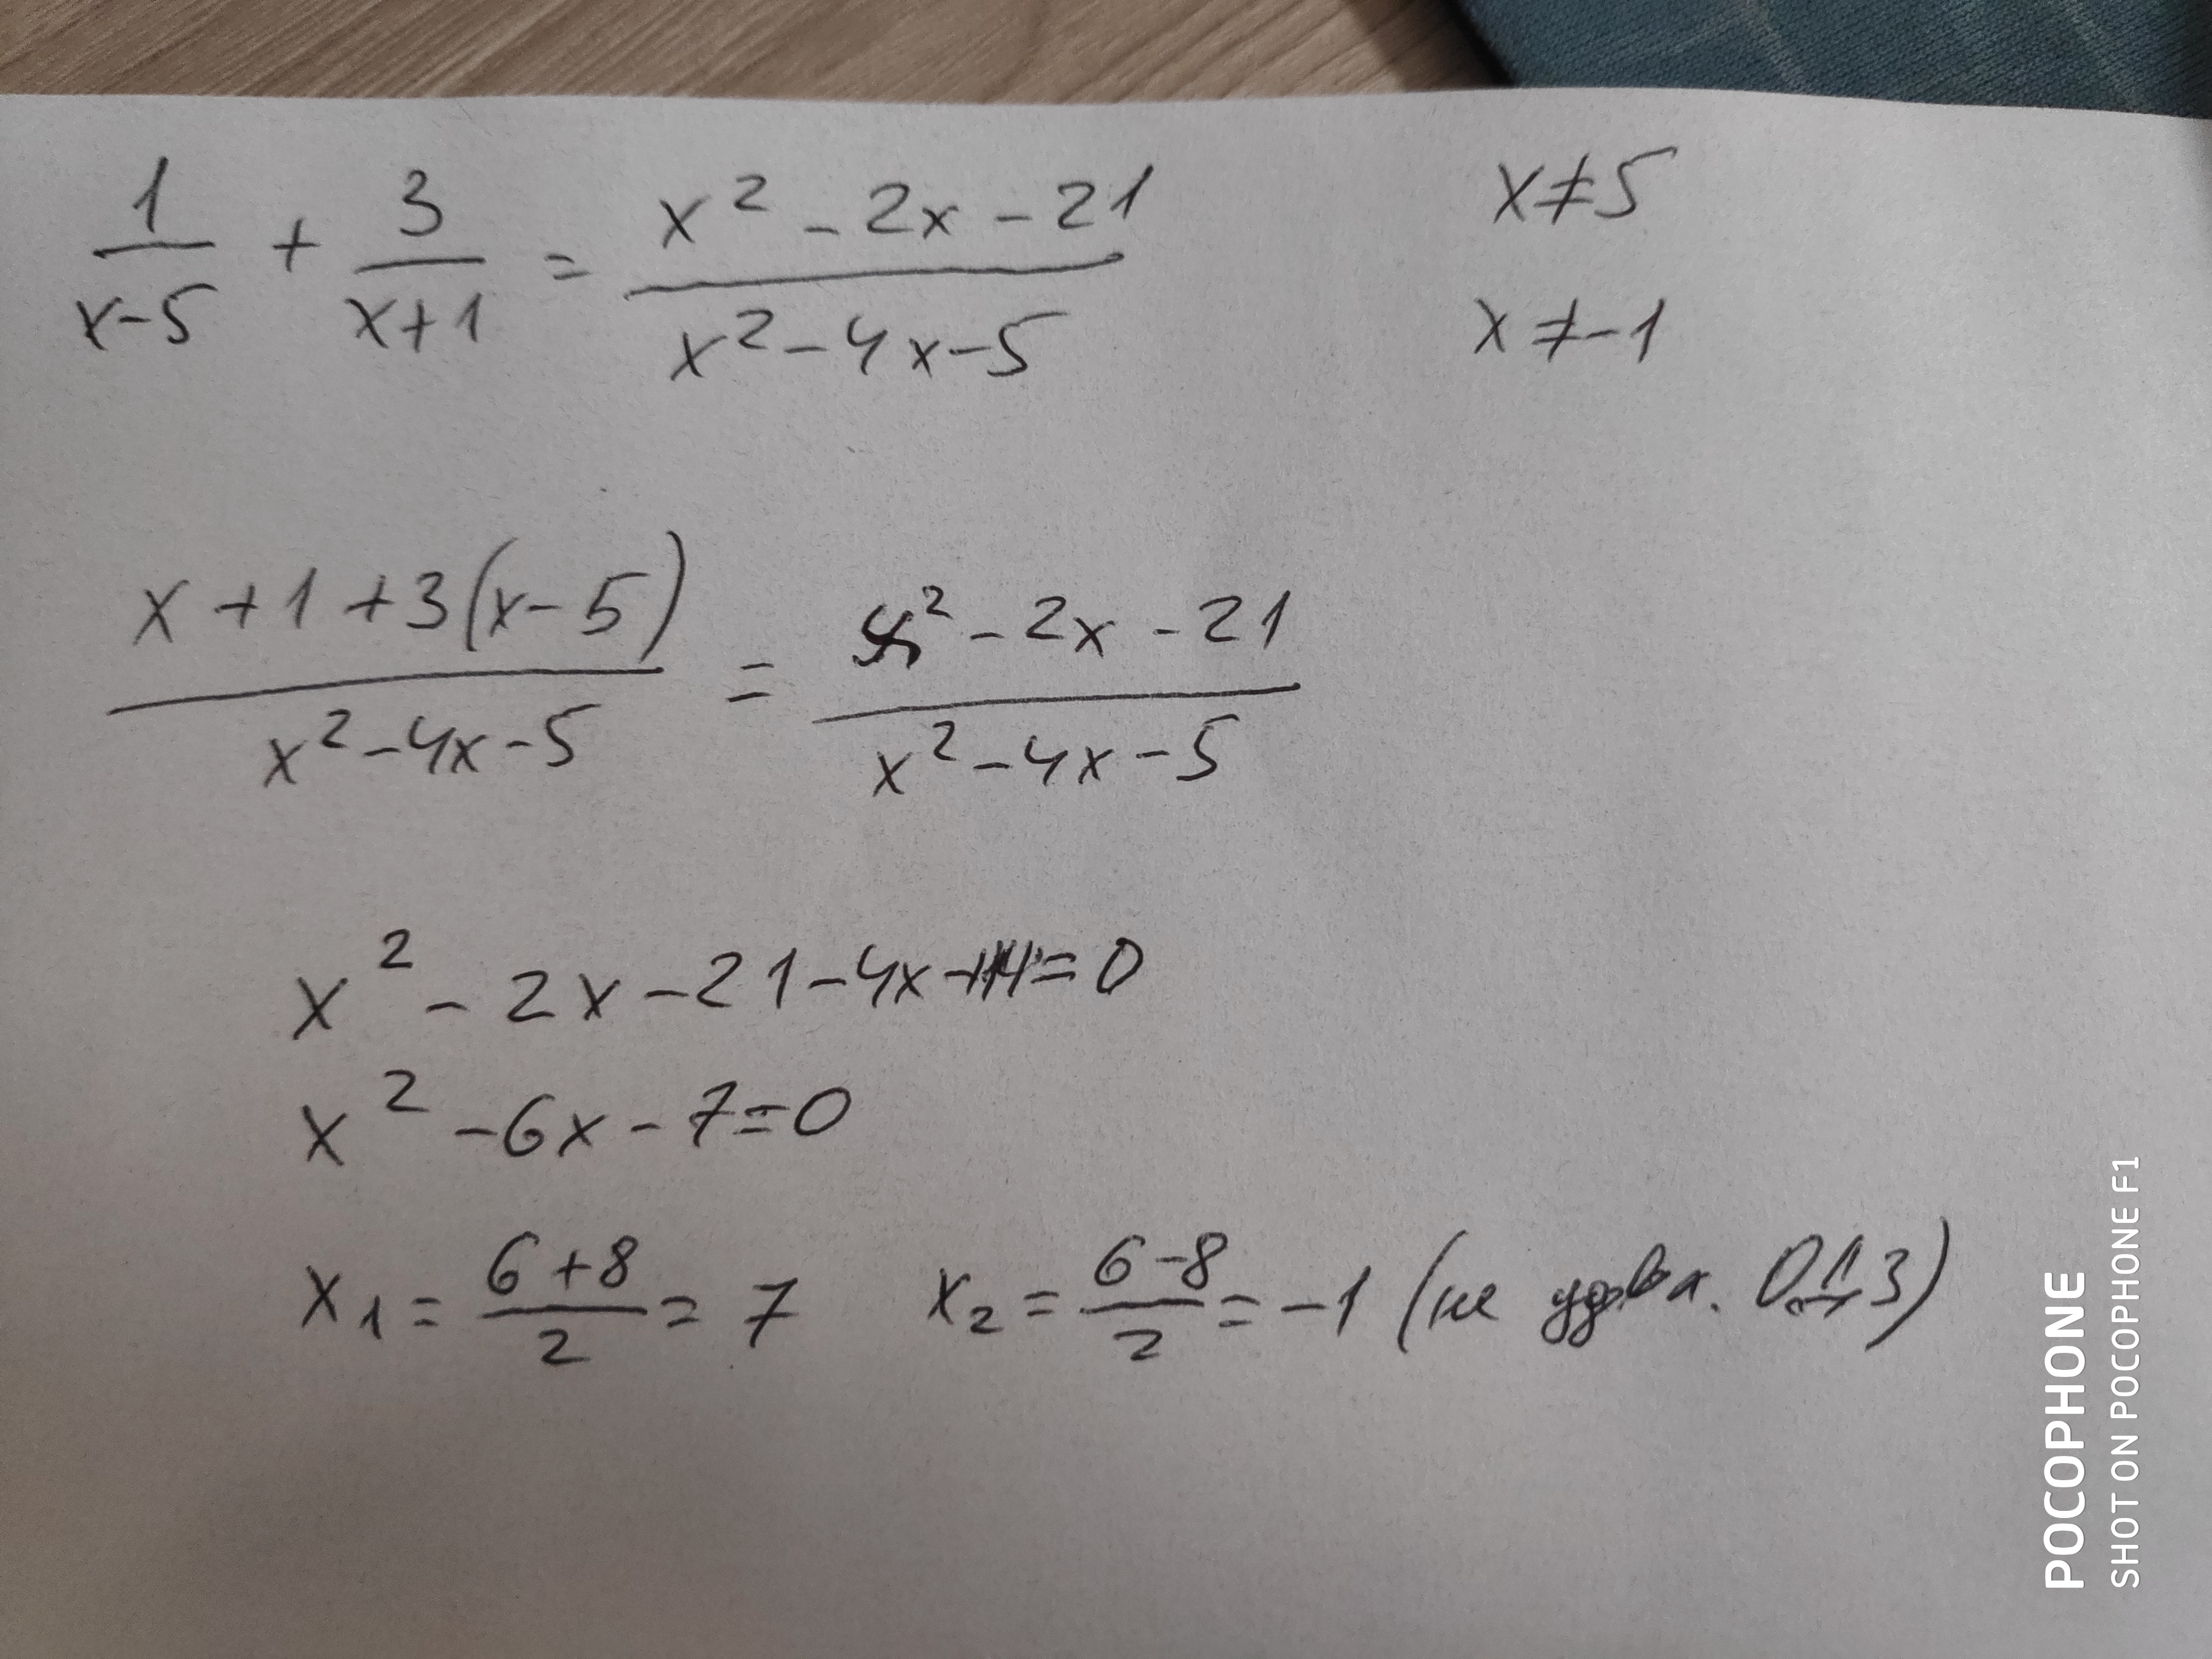 1/(x-5) + 3/(x+1) = (x² - 2x - 21)/(x² - 4x - 5)
x≠5
x≠-1
(x+1+3(x-5))/(x²-4x-5) = (x²-2x-21)/(x²-4x-5)
x² - 2x - 21 - 4x + 14 = 0
x² - 6x - 7 = 0
x₁ = (6+8)/2 = 7 x₂ = (6-8)/2 = -1 (не удовл. ОДЗ)
POCOPHONE
SHOT ON POCOPHONE F1